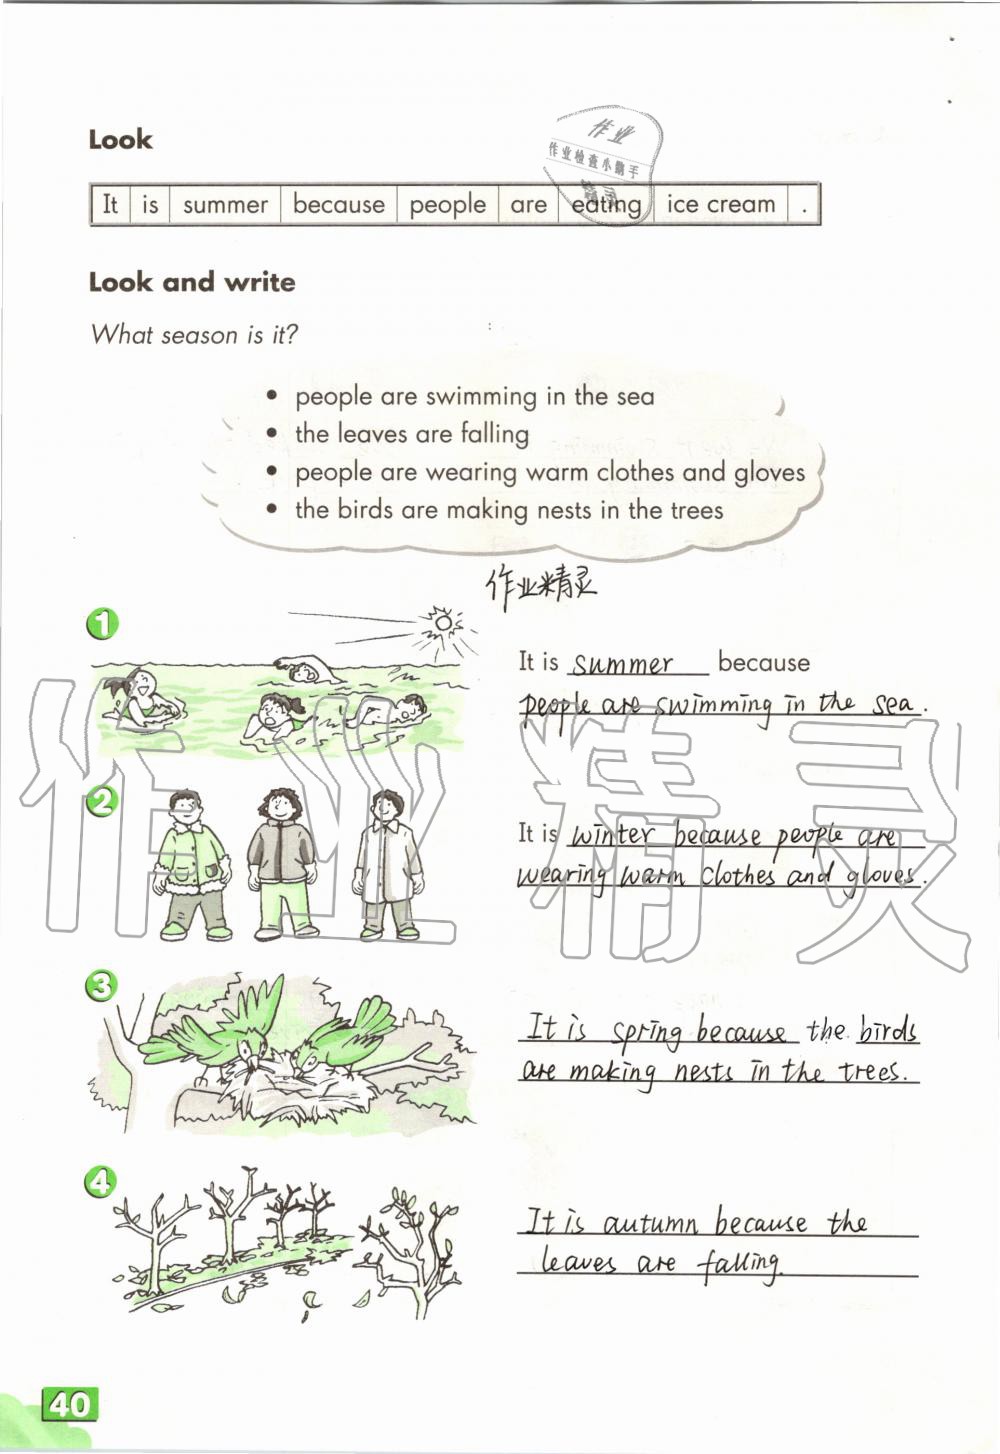 Look
作业
作业检查小助手
精灵
It is summer because people are eating ice cream .
Look and write
What season is it?
• people are swimming in the sea
• the leaves are falling
• people are wearing warm clothes and gloves
• the birds are making nests in the trees
作业精灵
1
It is summer because
people are swimming in the sea.
2
It is winter because people are
wearing warm clothes and gloves.
3
It is spring because the birds
are making nests in the trees.
4
It is autumn because the
leaves are falling.
作业精灵
40